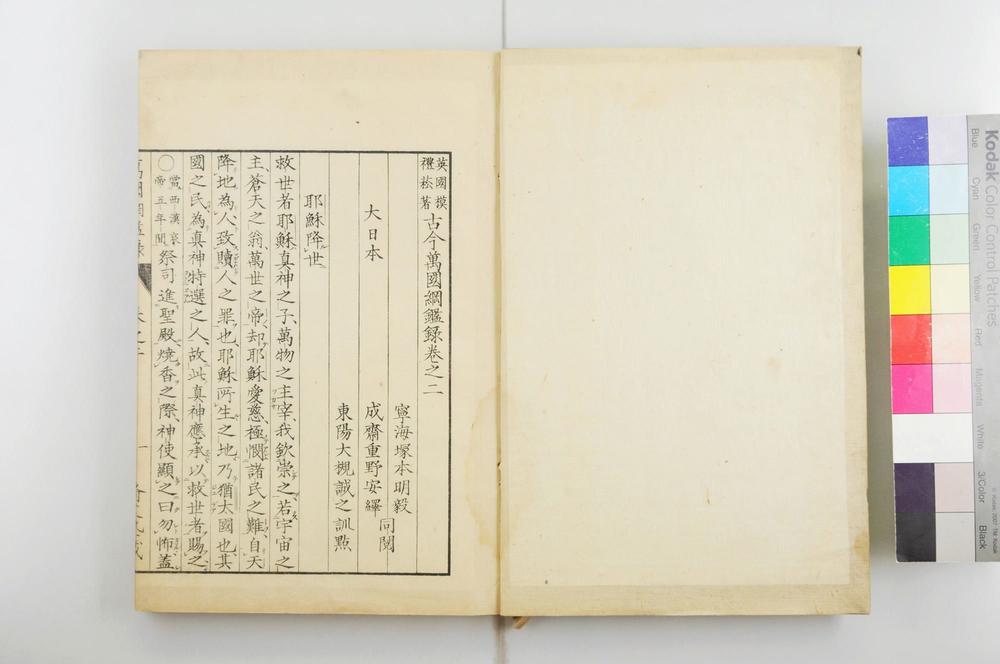 英國模
禮崧著
古今萬國綱鑑録卷之二
寧海塚本明毅
大日本
成齋重野安繹 同閲
東陽大槻誠之訓點
耶穌降世
救世者耶穌真神之子萬物之主宰、我欽崇之、若宇宙之
主、蒼天之翁萬世之帝、却耶穌愛慈、極憫諸民之難、自天
降地為人、致贖人之罪也、耶穌所生之地乃猶太國也、其
國之民為真神特選之人、故此真神應承以救世者賜之
○當西漢哀
帝五年間
祭司進聖殿燒香之際、神使顯之曰勿怖蓋
Kodak Color Control Patches
Blue Cyan Green Yellow Red Magenta White 3/Color Black